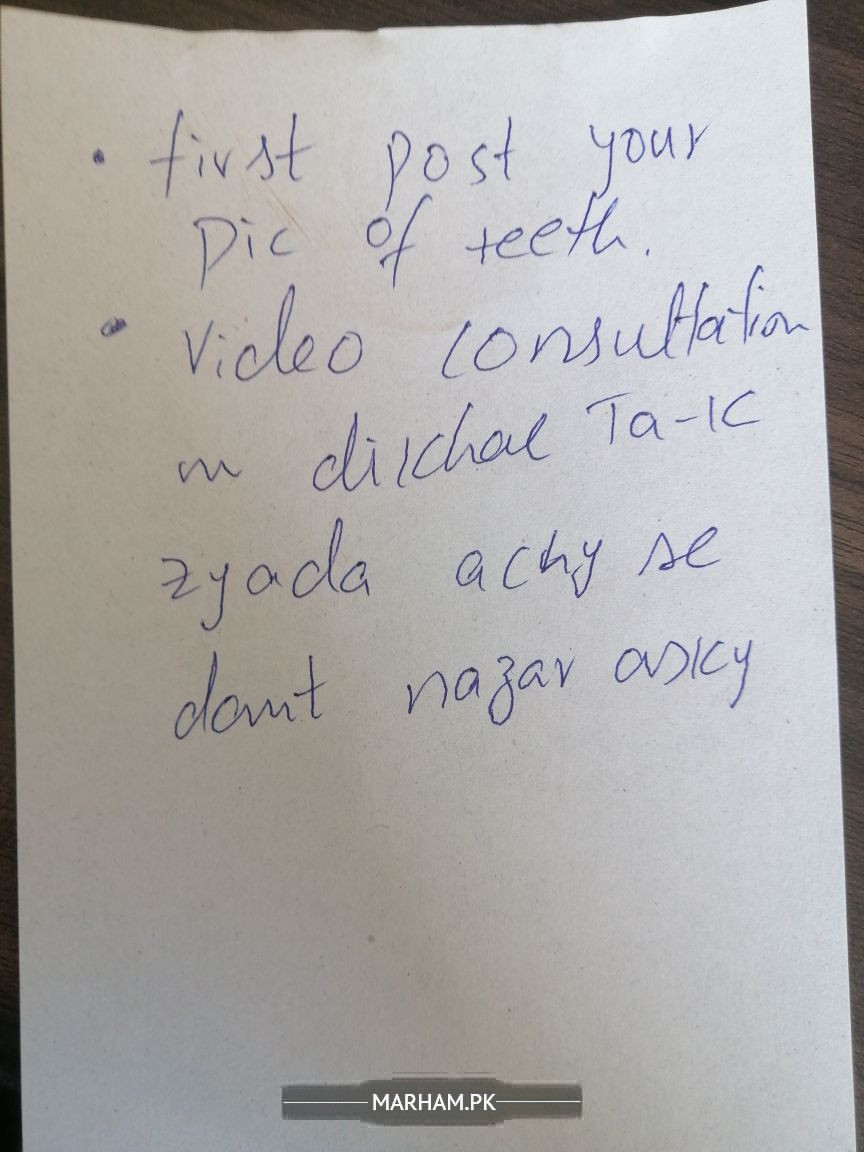 • first post your
pic of teeth.
• Video consultation
m dikhae Ta-K
zyada achy se
dant nazar asky
MARHAM.PK